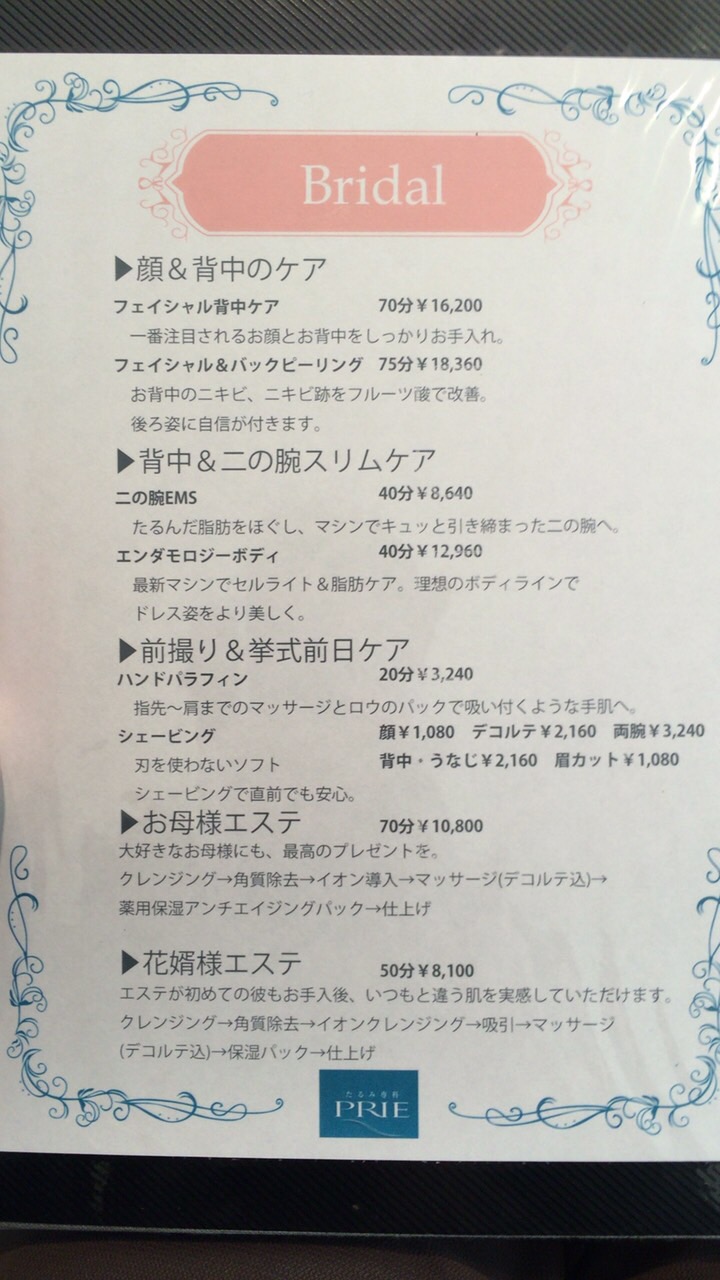 Bridal
▶顔＆背中のケア
フェイシャル背中ケア 70分￥16,200
一番注目されるお顔とお背中をしっかりお手入れ。
フェイシャル＆バックピーリング 75分￥18,360
お背中のニキビ、ニキビ跡をフルーツ酸で改善。
後ろ姿に自信が付きます。
▶背中＆二の腕スリムケア
二の腕EMS 40分￥8,640
たるんだ脂肪をほぐし、マシンでキュッと引き締まった二の腕へ。
エンダモロジーボディ 40分￥12,960
最新マシンでセルライト＆脂肪ケア。理想のボディラインで
ドレス姿をより美しく。
▶前撮り＆挙式前日ケア
ハンドパラフィン 20分￥3,240
指先〜肩までのマッサージとロウのパックで吸い付くような手肌へ。
シェービング 顔￥1,080 デコルテ￥2,160 両腕￥3,240
刃を使わないソフト 背中・うなじ￥2,160 眉カット￥1,080
シェービングで直前でも安心。
▶お母様エステ 70分￥10,800
大好きなお母様にも、最高のプレゼントを。
クレンジング→角質除去→イオン導入→マッサージ(デコルテ込)→
薬用保湿アンチエイジングパック→仕上げ
▶花婿様エステ 50分￥8,100
エステが初めての彼もお手入後、いつもと違う肌を実感していただけます。
クレンジング→角質除去→イオンクレンジング→吸引→マッサージ
(デコルテ込)→保湿パック→仕上げ
たるみ専科
PRIE